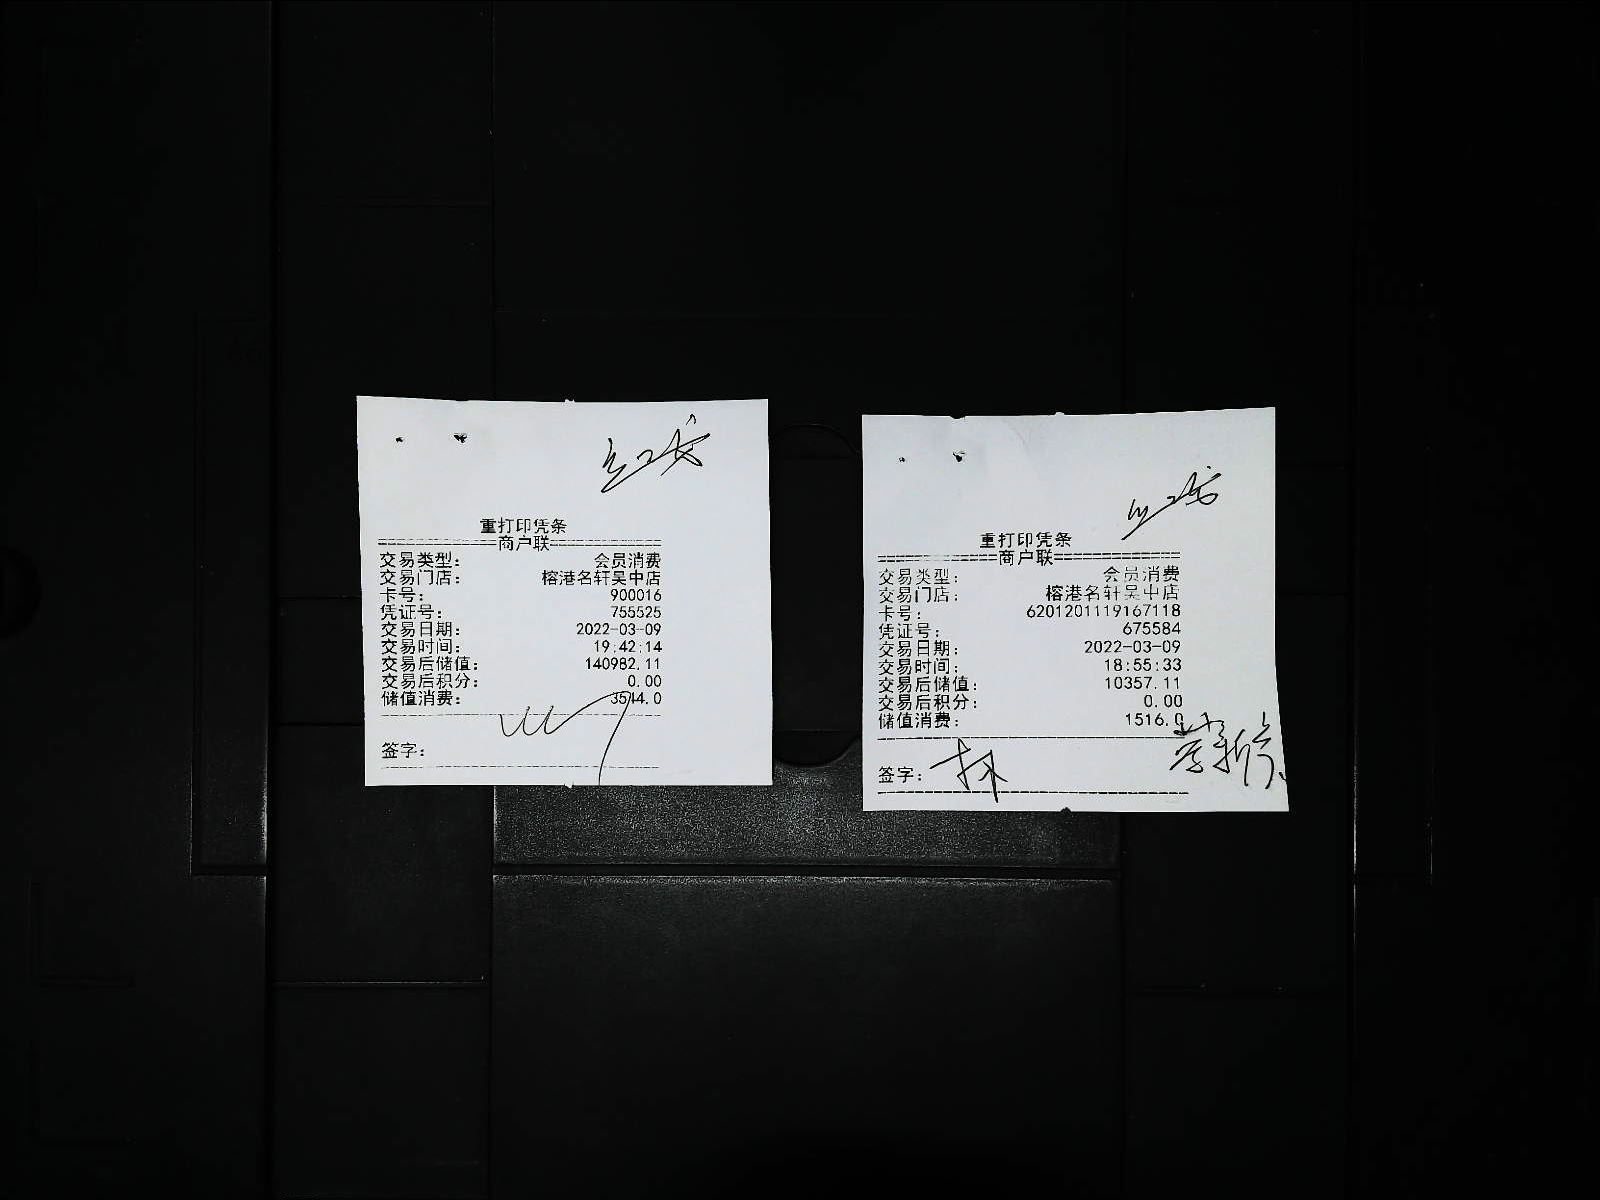 重打印凭条
==============商户联==============
交易类型： 会员消费
交易门店： 榕港名轩吴中店
卡号： 900016
凭证号： 755525
交易日期： 2022-03-09
交易时间： 19:42:14
交易后储值： 140982.11
交易后积分： 0.00
储值消费： 3544.0
签字：
重打印凭条
==============商户联==============
交易类型： 会员消费
交易门店： 榕港名轩吴中店
卡号： 6201201119167118
凭证号： 675584
交易日期： 2022-03-09
交易时间： 18:55:33
交易后储值： 10357.11
交易后积分： 0.00
储值消费： 1516.0
签字： 林